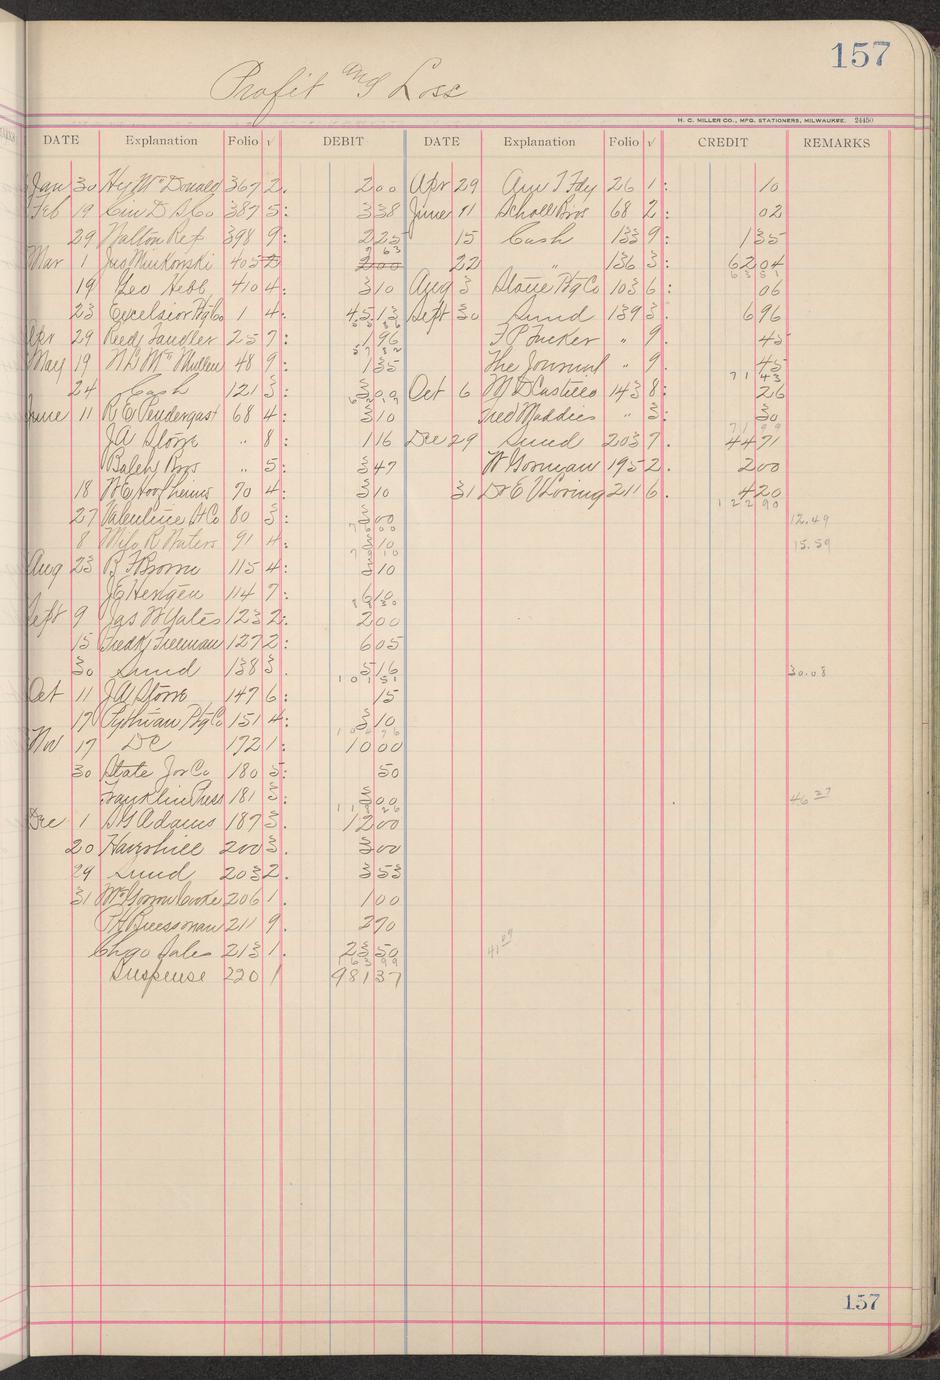 157
Profit and Loss
H. C. MILLER CO., MFG. STATIONERS, MILWAUKEE. 24450
DATE Explanation Folio √ DEBIT DATE Explanation Folio √ CREDIT REMARKS
Jan 30 Hy McDonald 367 2. 2 00 Apr 29 Am T Fdy 26 1: 10
Feb 19 Cin D S Co 387 5: 3 38 June 11 Scholl Bros 68 2: 02
29 Walton Ref 398 9: 2 25 15 Cash 133 9: 1 35
7 63
Mar 1 Jus Minkowski 405 2 00 22 " 136 3: 62 04
63 51
19 Geo Hebb 410 4: 3 10 Aug 3 Stowe Ptg Co 103 6: 06
23 Excelsior Ptg Co 1 4. 45 13 Sept 30 Sund 139 3: 6 96
Apr 29 Reed Taudler 25 7: 1 96 F P Tucker " 9. 45
May 19 N D McMullen 48 9: 1 35 The Journal " 9. 45
71 43
24 Cash 121 3: 3 09 Oct 6 M D Castillo 143 8: 26
June 11 R E Pendergast 68 4: 3 10 Fred Maddies " 3: 30
71 99
J A Stowe " 8: 1 16 Dec 29 Sund 203 7. 44 71
Balchs Bros " 5: 3 47 W Gorman 195 2. 2 00
18 W E Hoofheins 70 4: 3 10 31 Dr E V Loring 211 6. 4 20
122 90
27 Valentine H Co 80 3: 3 00 12.49
8 Milo R Waters 91 4. 3 10 15.59
Aug 23 B F Brown 115 4: 3 10
J E Hengen 114 7: 6 10
Sept 9 Jas W Yates 123 2: 2 00
15 Fredk Freeman 127 2: 6 05
30 Sund 138 3: 5 16 30.08
101 51
Oct 11 J A Stowe 147 6: 15
17 Pythian Ptg Co 151 4: 3 10
104 76
Nov 17 D C 172 1: 10 00
30 State Jor Co 180 5: 50
Franklin Press 181 3: 3 00 46 27
118 26
Dec 1 D G Adams 187 3. 12 00
20 Haverhill 200 3. 3 00
29 Sund 203 2. 3 53
31 McGorm Cooke 206 1. 1 00
P H Bressonan 211 9. 2 70
Chgo Sales 213 1. 23 50 41 09
163 99
Suspense 220 1 981 37
157